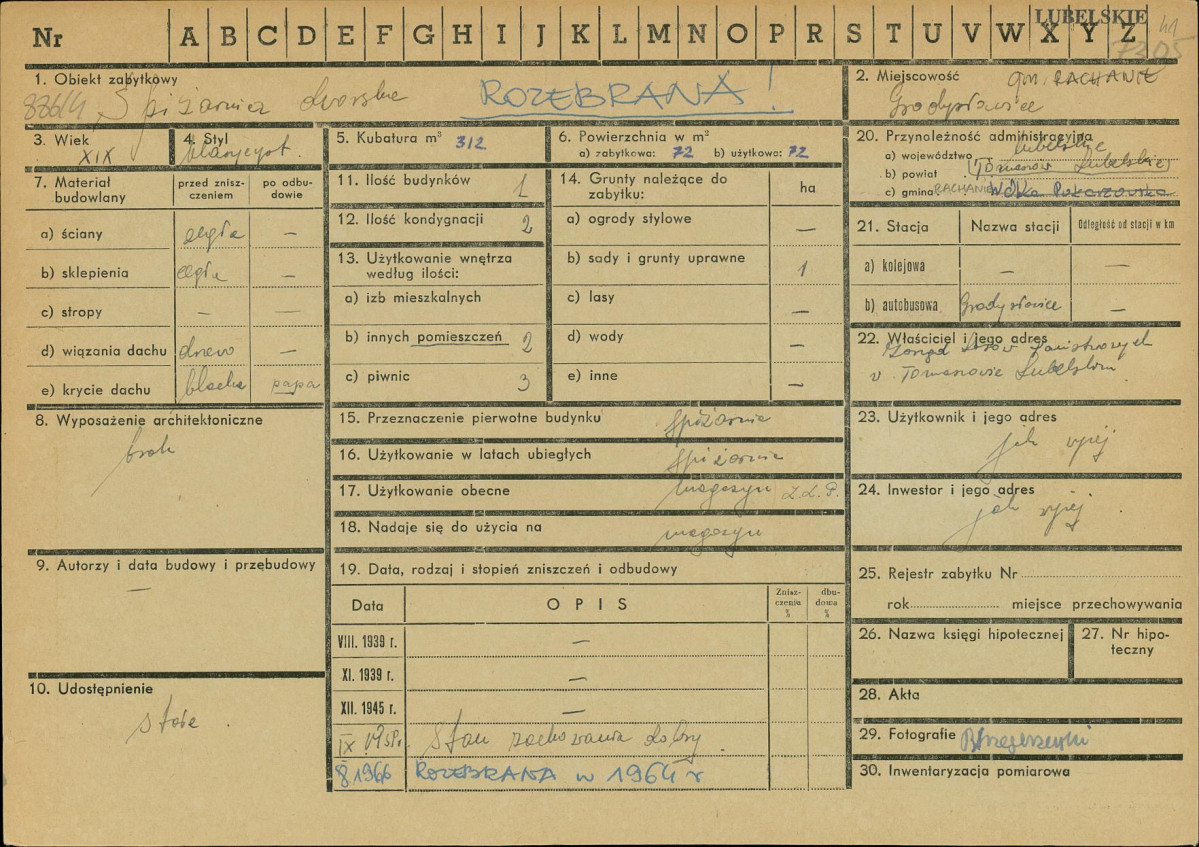 LUBELSKIE
Nr A B C D E F G H I J K L M N O P R S T U V W X Y Z
7205
1. Obiekt zabytkowy
876/4 Spiżarnia dworska ROZEBRANA!
2. Miejscowość gm. RACHANIE
Grodysławice
3. Wiek
XIX
4. Styl
klasycyst.
5. Kubatura m³ 312
6. Powierzchnia w m²
a) zabytkowa: 72 b) użytkowa: 72
7. Materiał budowlany
przed zniszczeniem
po odbudowie
a) ściany cegła —
b) sklepienia cegła —
c) stropy — —
d) wiązania dachu drewo —
e) krycie dachu blacha papa
8. Wyposażenie architektoniczne
brak
9. Autorzy i data budowy i przebudowy
—
10. Udostępnienie
stałe
11. Ilość budynków 1
12. Ilość kondygnacji 2
13. Użytkowanie wnętrza
według ilości:
a) izb mieszkalnych
b) innych pomieszczeń 2
c) piwnic 3
14. Grunty należące do
zabytku: ha
a) ogrody stylowe —
b) sady i grunty uprawne 1
c) lasy
d) wody —
e) inne —
15. Przeznaczenie pierwotne budynku spiżarnia
16. Użytkowanie w latach ubiegłych spiżarnia
17. Użytkowanie obecne magazyn Z.L.P.
18. Nadaje się do użycia na magazyn
19. Data, rodzaj i stopień zniszczeń i odbudowy
Data OPIS Zniszczenia % dbudowa %
VIII. 1939 r. —
XI. 1939 r. —
XII. 1945 r. —
IX 1959r. Stan zachowania dobry
1966 ROZEBRANA w 1964 r
20. Przynależność administracyjna
a) województwo lubelskie
b) powiat Tomaszów Lubelski
c) gmina RACHANIE Wólka Pukarzowska
21. Stacja Nazwa stacji Odległość od stacji w km
a) kolejowa — —
b) autobusowa Grodysławice —
22. Właściciel i jego adres
Zarząd Lasów Państwowych
w Tomaszowie Lubelskim
23. Użytkownik i jego adres
jak wyżej
24. Inwestor i jego adres
jak wyżej
25. Rejestr zabytku Nr
rok miejsce przechowywania
26. Nazwa księgi hipotecznej
27. Nr hipoteczny
28. Akta
29. Fotografie
30. Inwentaryzacja pomiarowa